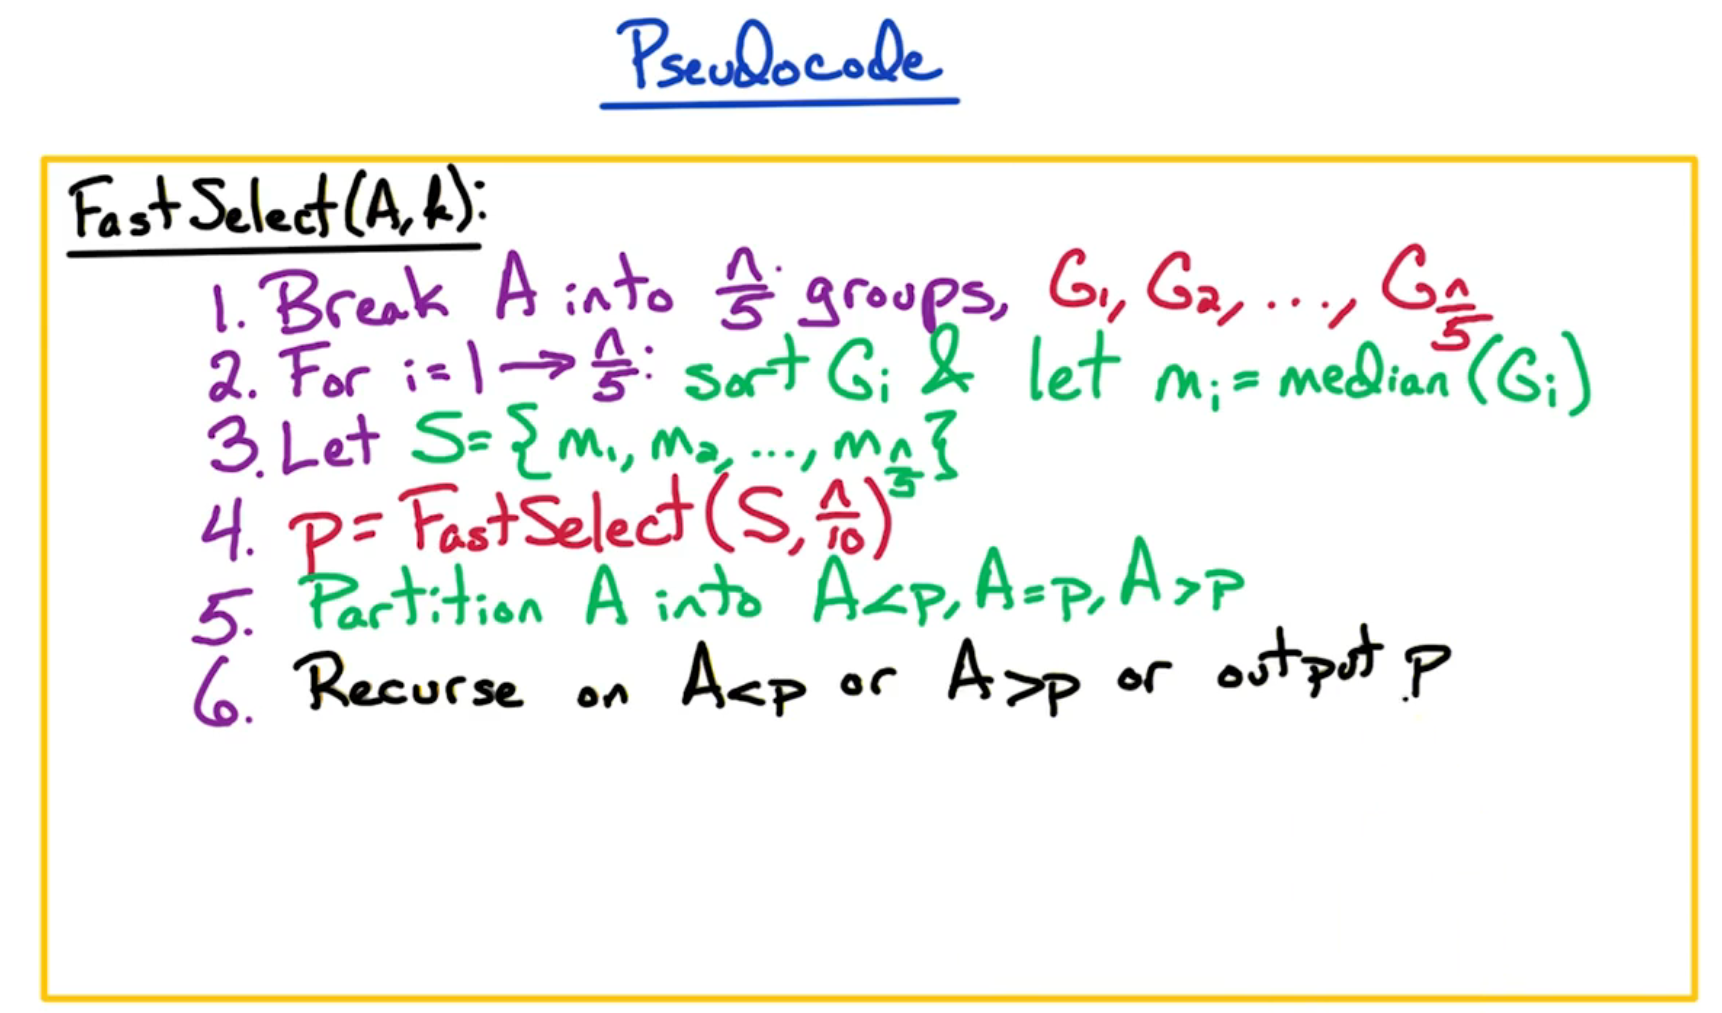 Pseudocode
FastSelect(A,k):
1. Break A into n/5 groups, G₁, G₂, ..., G_{n/5}
2. For i=1→n/5: sort Gᵢ & let mᵢ = median(Gᵢ)
3. Let S={m₁, m₂, ..., m_{n/5}}
4. p= FastSelect(S, n/10)
5. Partition A into A<p, A=p, A>p
6. Recurse on A<p or A>p or output p